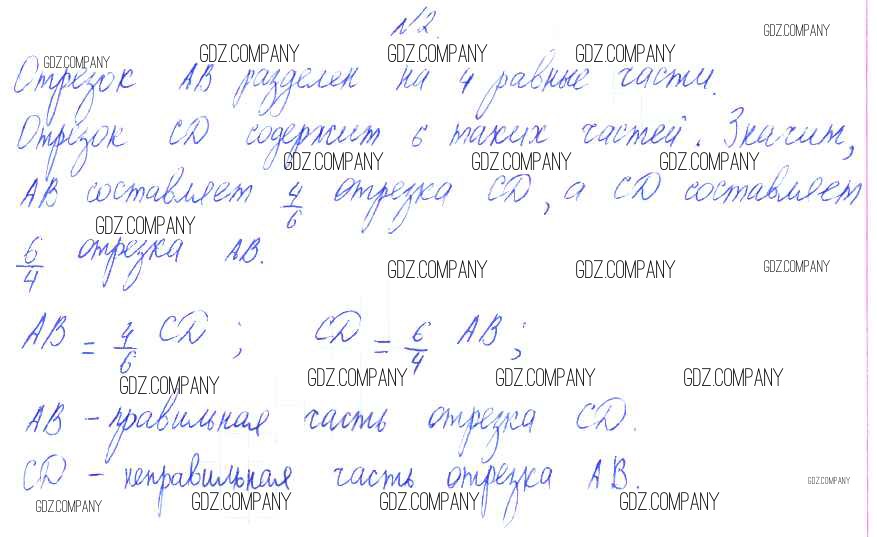 №2.
GDZ.COMPANY
GDZ.COMPANY GDZ.COMPANY GDZ.COMPANY GDZ.COMPANY
Отрезок AB разделен на 4 равные части.
Отрезок CD содержит 6 таких частей. Значит,
GDZ.COMPANY GDZ.COMPANY GDZ.COMPANY
AB составляет 4/6 отрезка CD, а CD составляет
GDZ.COMPANY
6/4 отрезка AB.
GDZ.COMPANY GDZ.COMPANY GDZ.COMPANY
AB = 4/6 CD; CD = 6/4 AB;
GDZ.COMPANY GDZ.COMPANY GDZ.COMPANY GDZ.COMPANY
AB – правильная часть отрезка CD.
CD – неправильная часть отрезка AB.
GDZ.COMPANY
GDZ.COMPANY GDZ.COMPANY GDZ.COMPANY GDZ.COMPANY